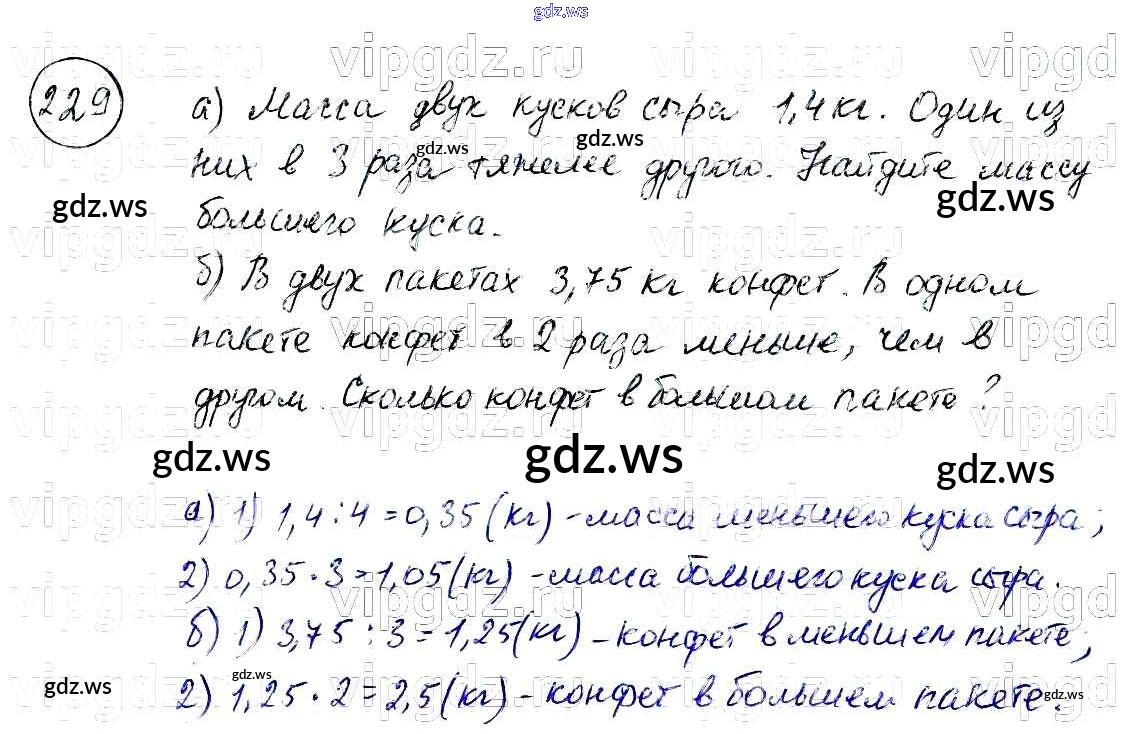 gdz.ws
229
а) Масса двух кусков сыра 1,4 кг. Один из
них в 3 раза тяжелее другого. Найдите массу
большего куска.
б) В двух пакетах 3,75 кг конфет. В одном
пакете конфет в 2 раза меньше, чем в
другом. Сколько конфет в большом пакете?
а) 1) 1,4 : 4 = 0,35 (кг) - масса меньшего куска сыра;
2) 0,35 · 3 = 1,05 (кг) - масса большего куска сыра.
б) 1) 3,75 : 3 = 1,25 (кг) - конфет в меньшем пакете;
2) 1,25 · 2 = 2,5 (кг) - конфет в большем пакете.
vipgdz.ru
gdz.ws